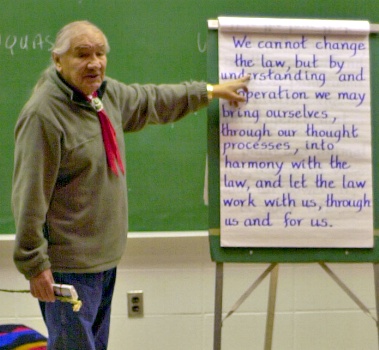 QUAS
We cannot change
the law, but by
understanding and
operation we may
bring ourselves,
through our thought
processes, into
harmony with the
law, and let the law
work with us, through
us and for us.